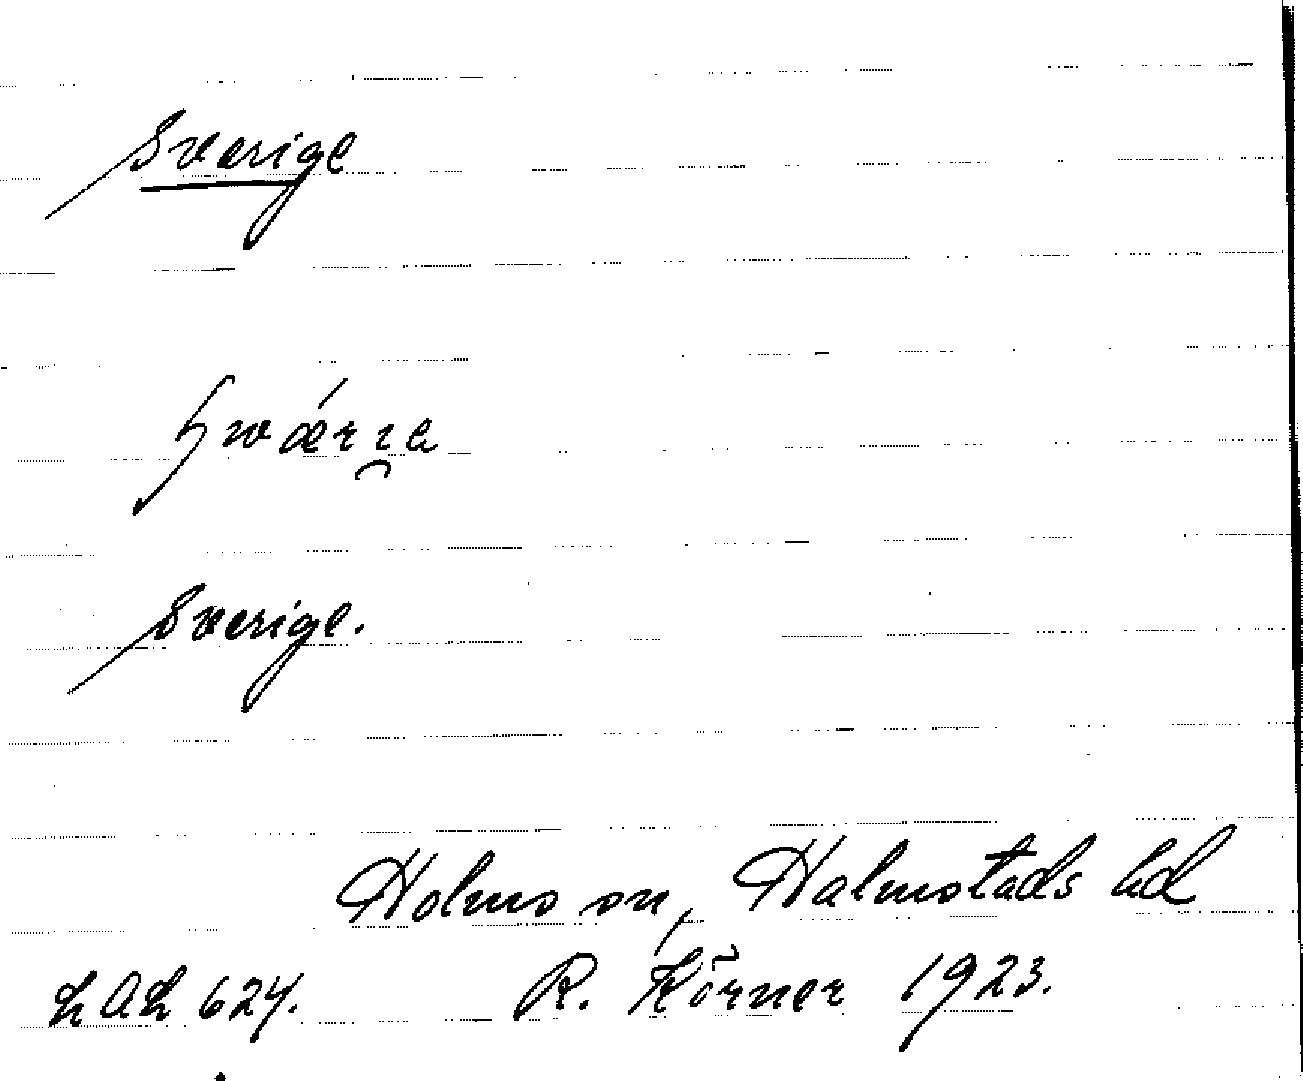 Sverige
Sverige.
Holms sn, Halmstads hd
LAL 624.
R. Körner 1923.